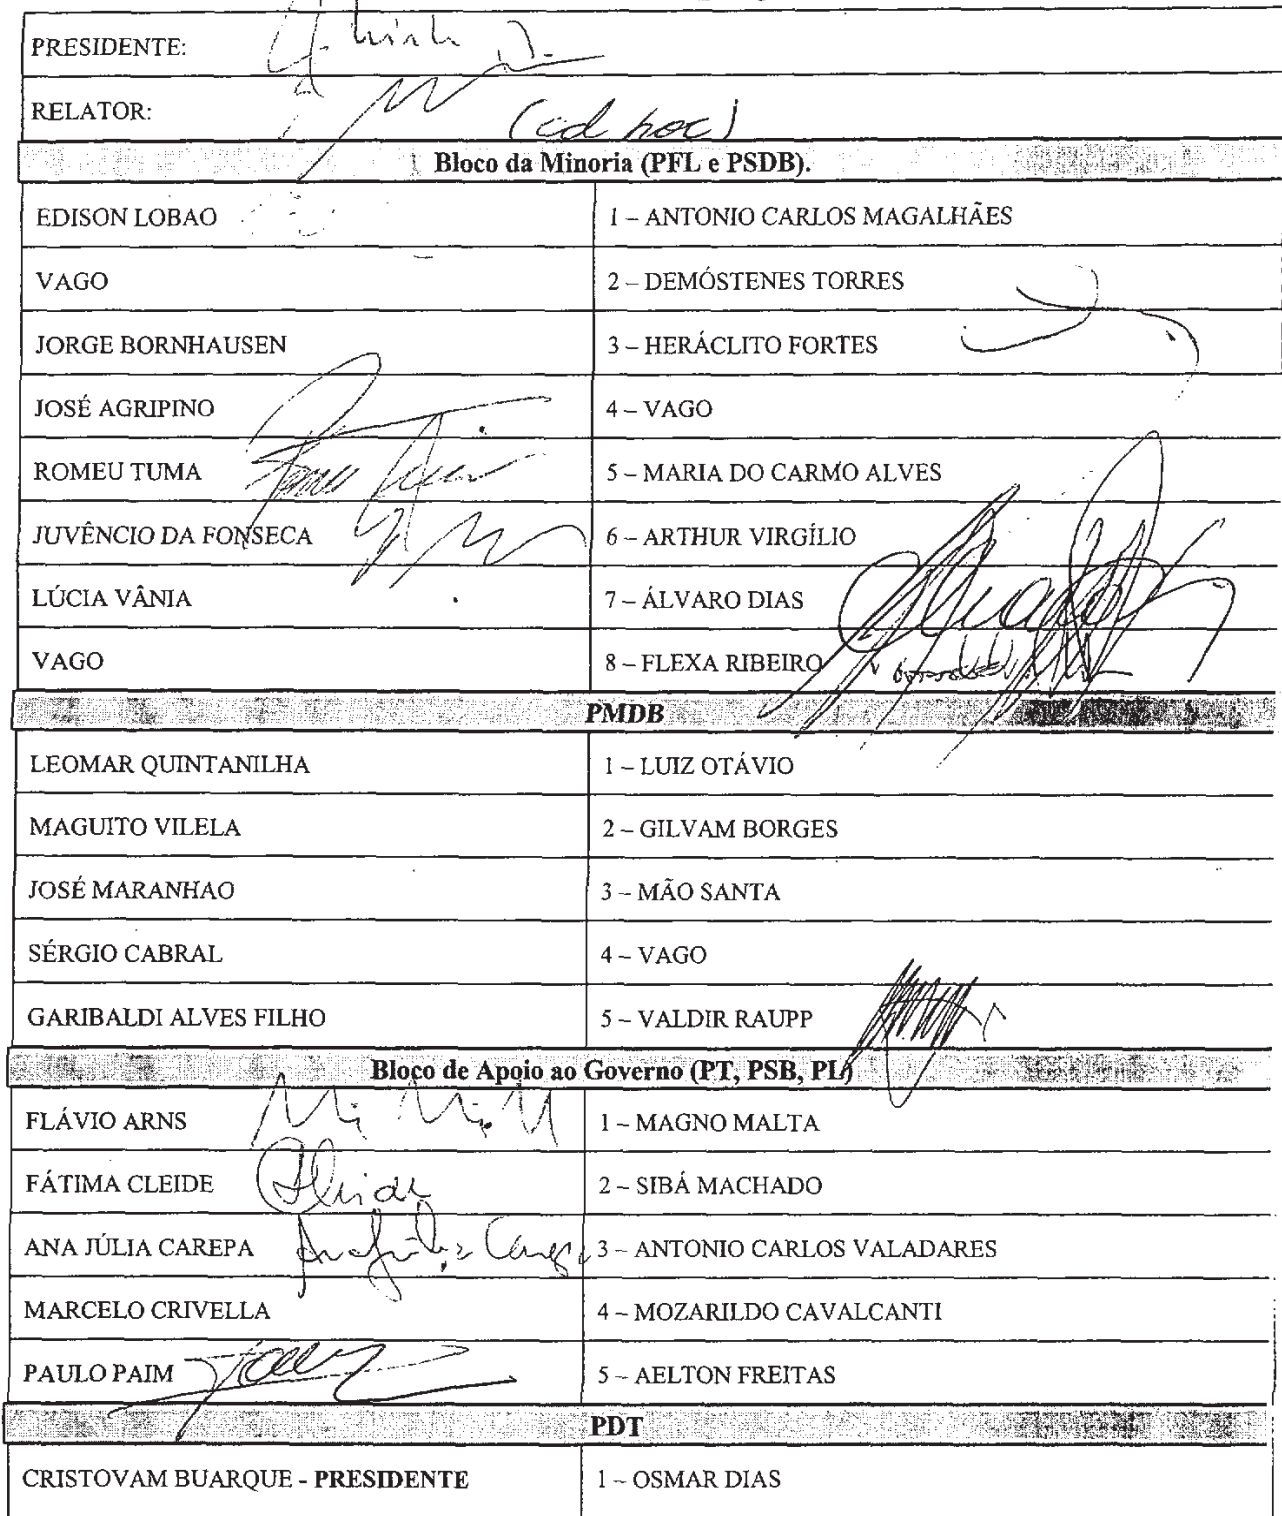 PRESIDENTE:
RELATOR: (ad hoc)
Bloco da Minoria (PFL e PSDB).
EDISON LOBAO 1 – ANTONIO CARLOS MAGALHÃES
VAGO 2 – DEMÓSTENES TORRES
JORGE BORNHAUSEN 3 – HERÁCLITO FORTES
JOSÉ AGRIPINO 4 – VAGO
ROMEU TUMA 5 – MARIA DO CARMO ALVES
JUVÊNCIO DA FONSECA 6 – ARTHUR VIRGÍLIO
LÚCIA VÂNIA 7 – ÁLVARO DIAS
VAGO 8 – FLEXA RIBEIRO
PMDB
LEOMAR QUINTANILHA 1 – LUIZ OTÁVIO
MAGUITO VILELA 2 – GILVAM BORGES
JOSÉ MARANHAO 3 – MÃO SANTA
SÉRGIO CABRAL 4 – VAGO
GARIBALDI ALVES FILHO 5 – VALDIR RAUPP
Bloco de Apoio ao Governo (PT, PSB, PL)
FLÁVIO ARNS 1 – MAGNO MALTA
FÁTIMA CLEIDE 2 – SIBÁ MACHADO
ANA JÚLIA CAREPA 3 – ANTONIO CARLOS VALADARES
MARCELO CRIVELLA 4 – MOZARILDO CAVALCANTI
PAULO PAIM 5 – AELTON FREITAS
PDT
CRISTOVAM BUARQUE - PRESIDENTE 1 – OSMAR DIAS